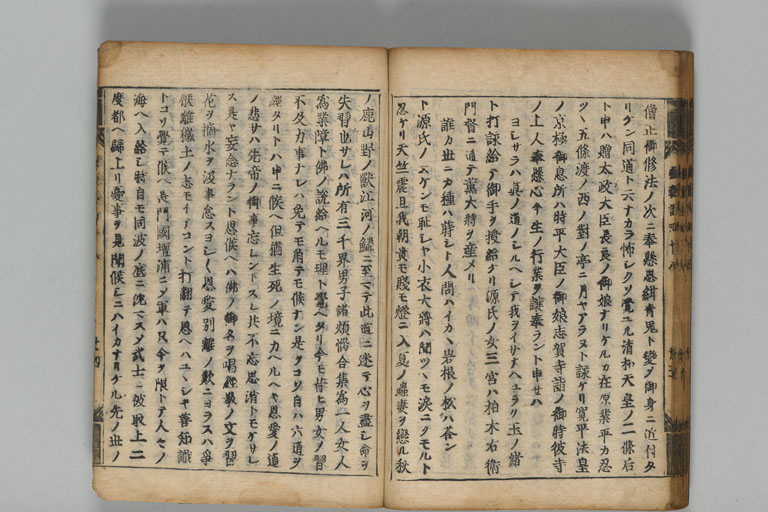 僧正御修法ノ次ニ奉懸思紺青鬼ト變ヲ御身ニ近付タ
リケン同道ト云ナカラ怖シクソ覺ユル清和天皇ノ二條后
ト申ハ贈太政大臣長良ノ御娘ナリケルカ在原業平カ忍
ツヽ五條渡ノ西ノ對ノ亭ニ月ヤアラヌト詠ケリ寛平法皇
ノ京極御息所ハ時平大臣ノ御娘志賀寺詣ノ御時彼寺
ノ上人奉懸心今生ノ行業ヲ譲奉ラント申セハ
ヨシサラハ真ノ道ノシルヘシテ我ヲイサナヘユラク玉ノ緒
ト打詠給テ御手ヲ授給ケリ源氏ノ女三宮ハ柏木右衛
門督ニ通テ薫大将ヲ産メリ
誰カ世ニカ種ハ蒔シト人問ハイカヽ岩根ノ松ハ答ン
ト源氏ノノケンモ耻シヤ小衣大将ハ聞ツヽモ涙ニクモルト
忍ケリ天竺震旦我朝貴モ賤モ燈ニ入夏ノ蟲妻ヲ戀ル秋
ノ鹿山野ノ獣江河ノ鱗ニ至マテ此道ニ迷テ心ヲ盡シ命ヲ
失習也サレハ所有三千界男子諸煩悩合集為一人女人
為業障ト佛ノ説給ヘルモ理ト覺ヘタリ今モ昔モ男女ノ習
不及力事ナレハ免テモ角テモ候ナン是ヲコソ自ハ六道ヲ
經タリトハ申ニ候ヘ但猶生死ノ境ニカヘルヘキ恩愛ノ道
ノ悲サハ先帝ノ御事忘レントスレ共不忘思消トモケサレ
ス是ヤ妄念ナラント思候ヘハ佛ノ御名ヲ唱經教ノ文ヲ習
花ヲ摘水ヲ汲事忘スヨシ恩愛別離ノ歎ニヨラスハ争
候離穢土ノ志モイテコント打翻テ思ヘハユヽシキ善知識
トコソ覺テ候ヘ長門國壇浦ニテ軍ハ只今ヲ限トテ人々ノ
海ヘ入給シ時自モ同波ノ底ニ沈マスソ武士ニ被取上二
度都ヘ歸上リ憂事ヲ見聞候シニハイカナリケル先ノ世ノ